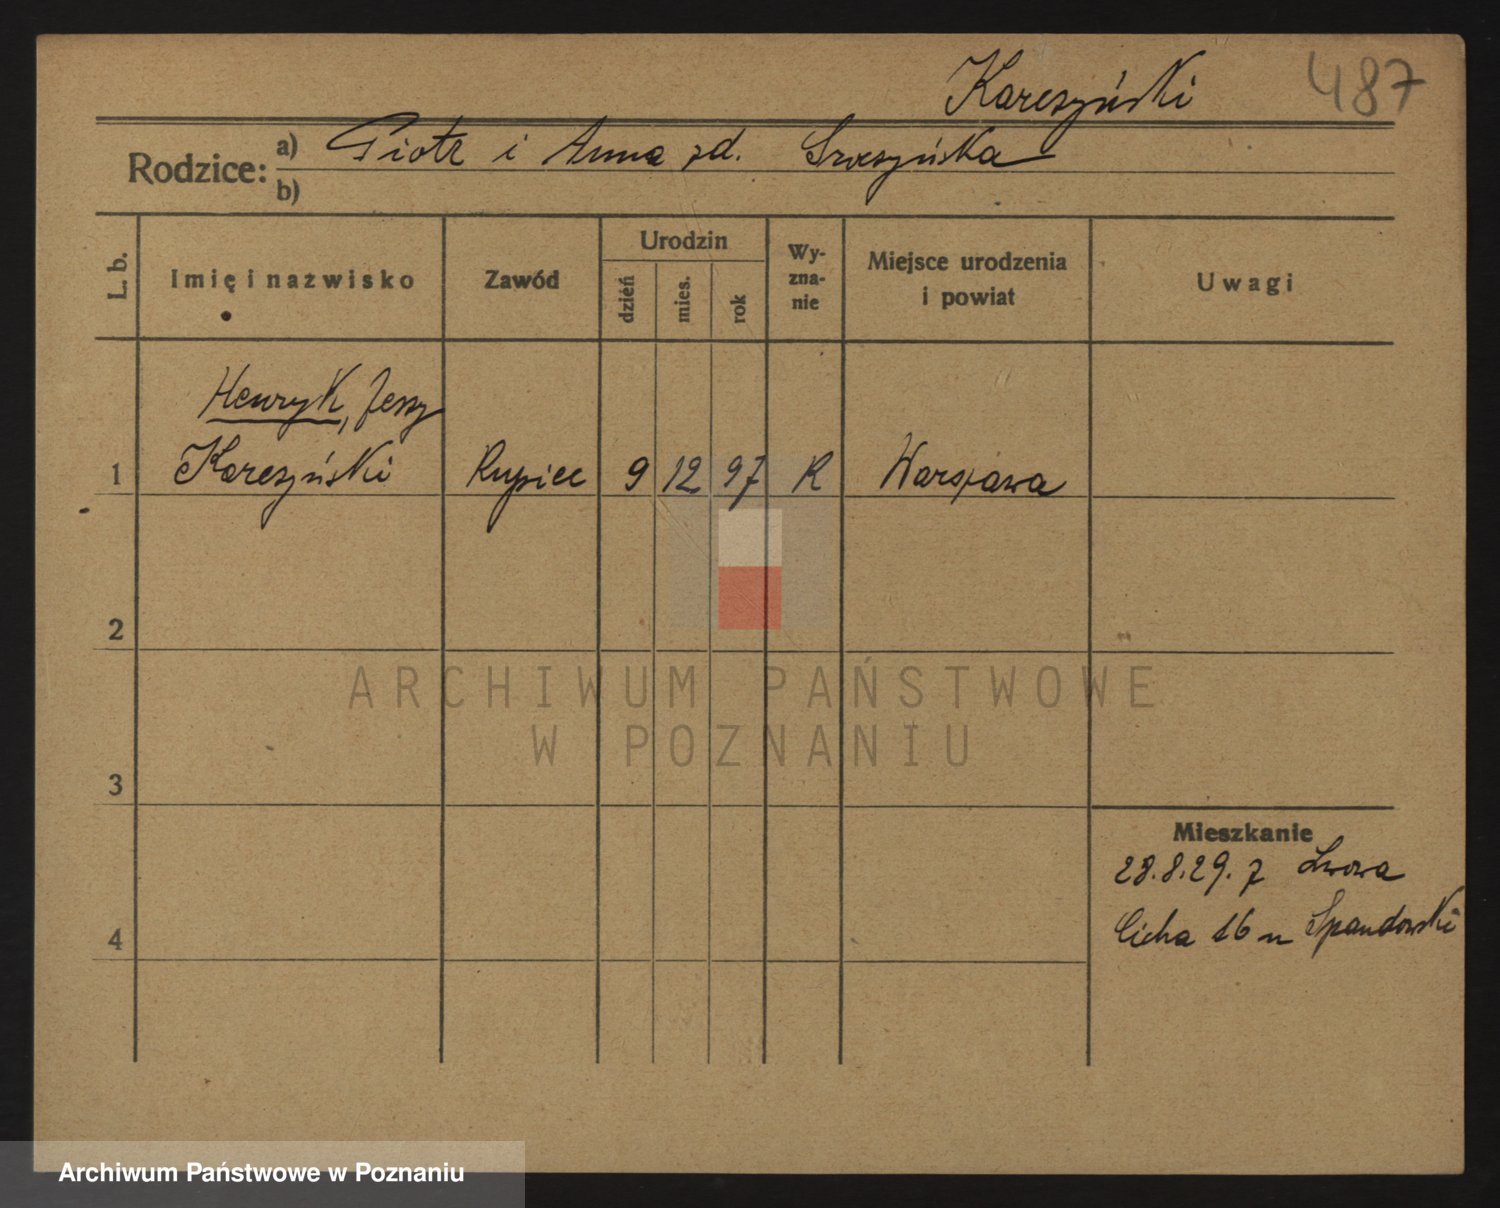 Kareszyński 487
Rodzice: a) Piotr i Anna zd.
b)
L. b. Imię i nazwisko Zawód Urodzin dzień mies. rok Wyznanie Miejsce urodzenia i powiat Uwagi
Henryk, Jerzy
1 Kareszyński Kupiec 9 12 97 R Warszawa
2
ARCHIWUM PAŃSTWOWE
W POZNANIU
3
Mieszkanie
28.8.29. z Lwowa
4 Cicha 16 u Spandowski
Archiwum Państwowe w Poznaniu